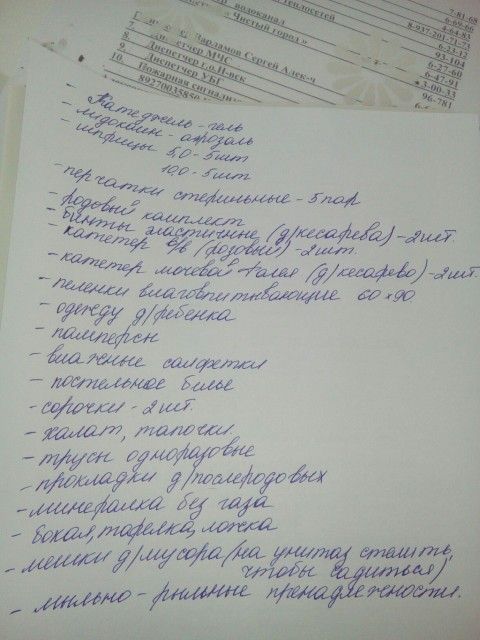 водоканал
теплосетей
Чистый город»
7-81-68
6-69-66
4-64-83
8-937-201-71-73
6-23-12
7.
Варламов Сергей Алек-ч
93-104
8.
Диспетчер МЧС
6-27-60
9.
Диспетчер г.о.Н-вск
6-47-91
10.
Диспетчер УБГ
3-00-33
Пожарная сигнализ
96-781
89270035850
- Катеджель-гель
- лидокаин-аэрозоль
- шприцы 5,0-5шт
10,0-5шт
- перчатки стерильные-5пар
- родовый комплект
- бинты эластичные (д/кесарева)-2шт.
- катетер в/в (розовый)-2шт.
- катетер мочевой Фалея (д/кесарево)-2шт.
- пеленки влаговпитывающие 60×90
- одежду д/ребенка
- памперсы
- влажные салфетки
- постельное белье
- сорочки-2шт.
- халат, тапочки
- трусы одноразовые
- прокладки д/послеродовых
- минералка без газа
- бокал, тарелка, ложка
- мешки д/мусора (на унитаз стелить,
чтобы садиться)
- мыльно-рыльные пренадлежности.